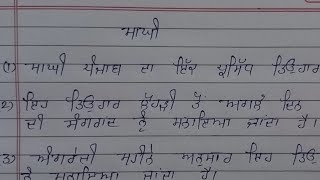 ਮਾਘੀ
(1) ਮਾਘੀ ਪੰਜਾਬ ਦਾ ਇੱਕ ਪ੍ਰਸਿੱਧ ਤਿਉਹਾਰ
2) ਇਹ ਤਿਉਹਾਰ ਲੋਹੜੀ ਤੋਂ ਅਗਲੇ ਦਿਨ
ਦੀ ਸੰਗਰਾਦ ਨੂੰ ਮਨਾਇਆ ਜਾਂਦਾ ਹੈ।
3) ਅੰਗਰੇਜ਼ੀ ਮਹੀਨੇ ਅਨੁਸਾਰ ਇਹ ਤਿਉ
ਨੂੰ ਮਨਾਇਆ ਜਾਂਦਾ ਹੈ।